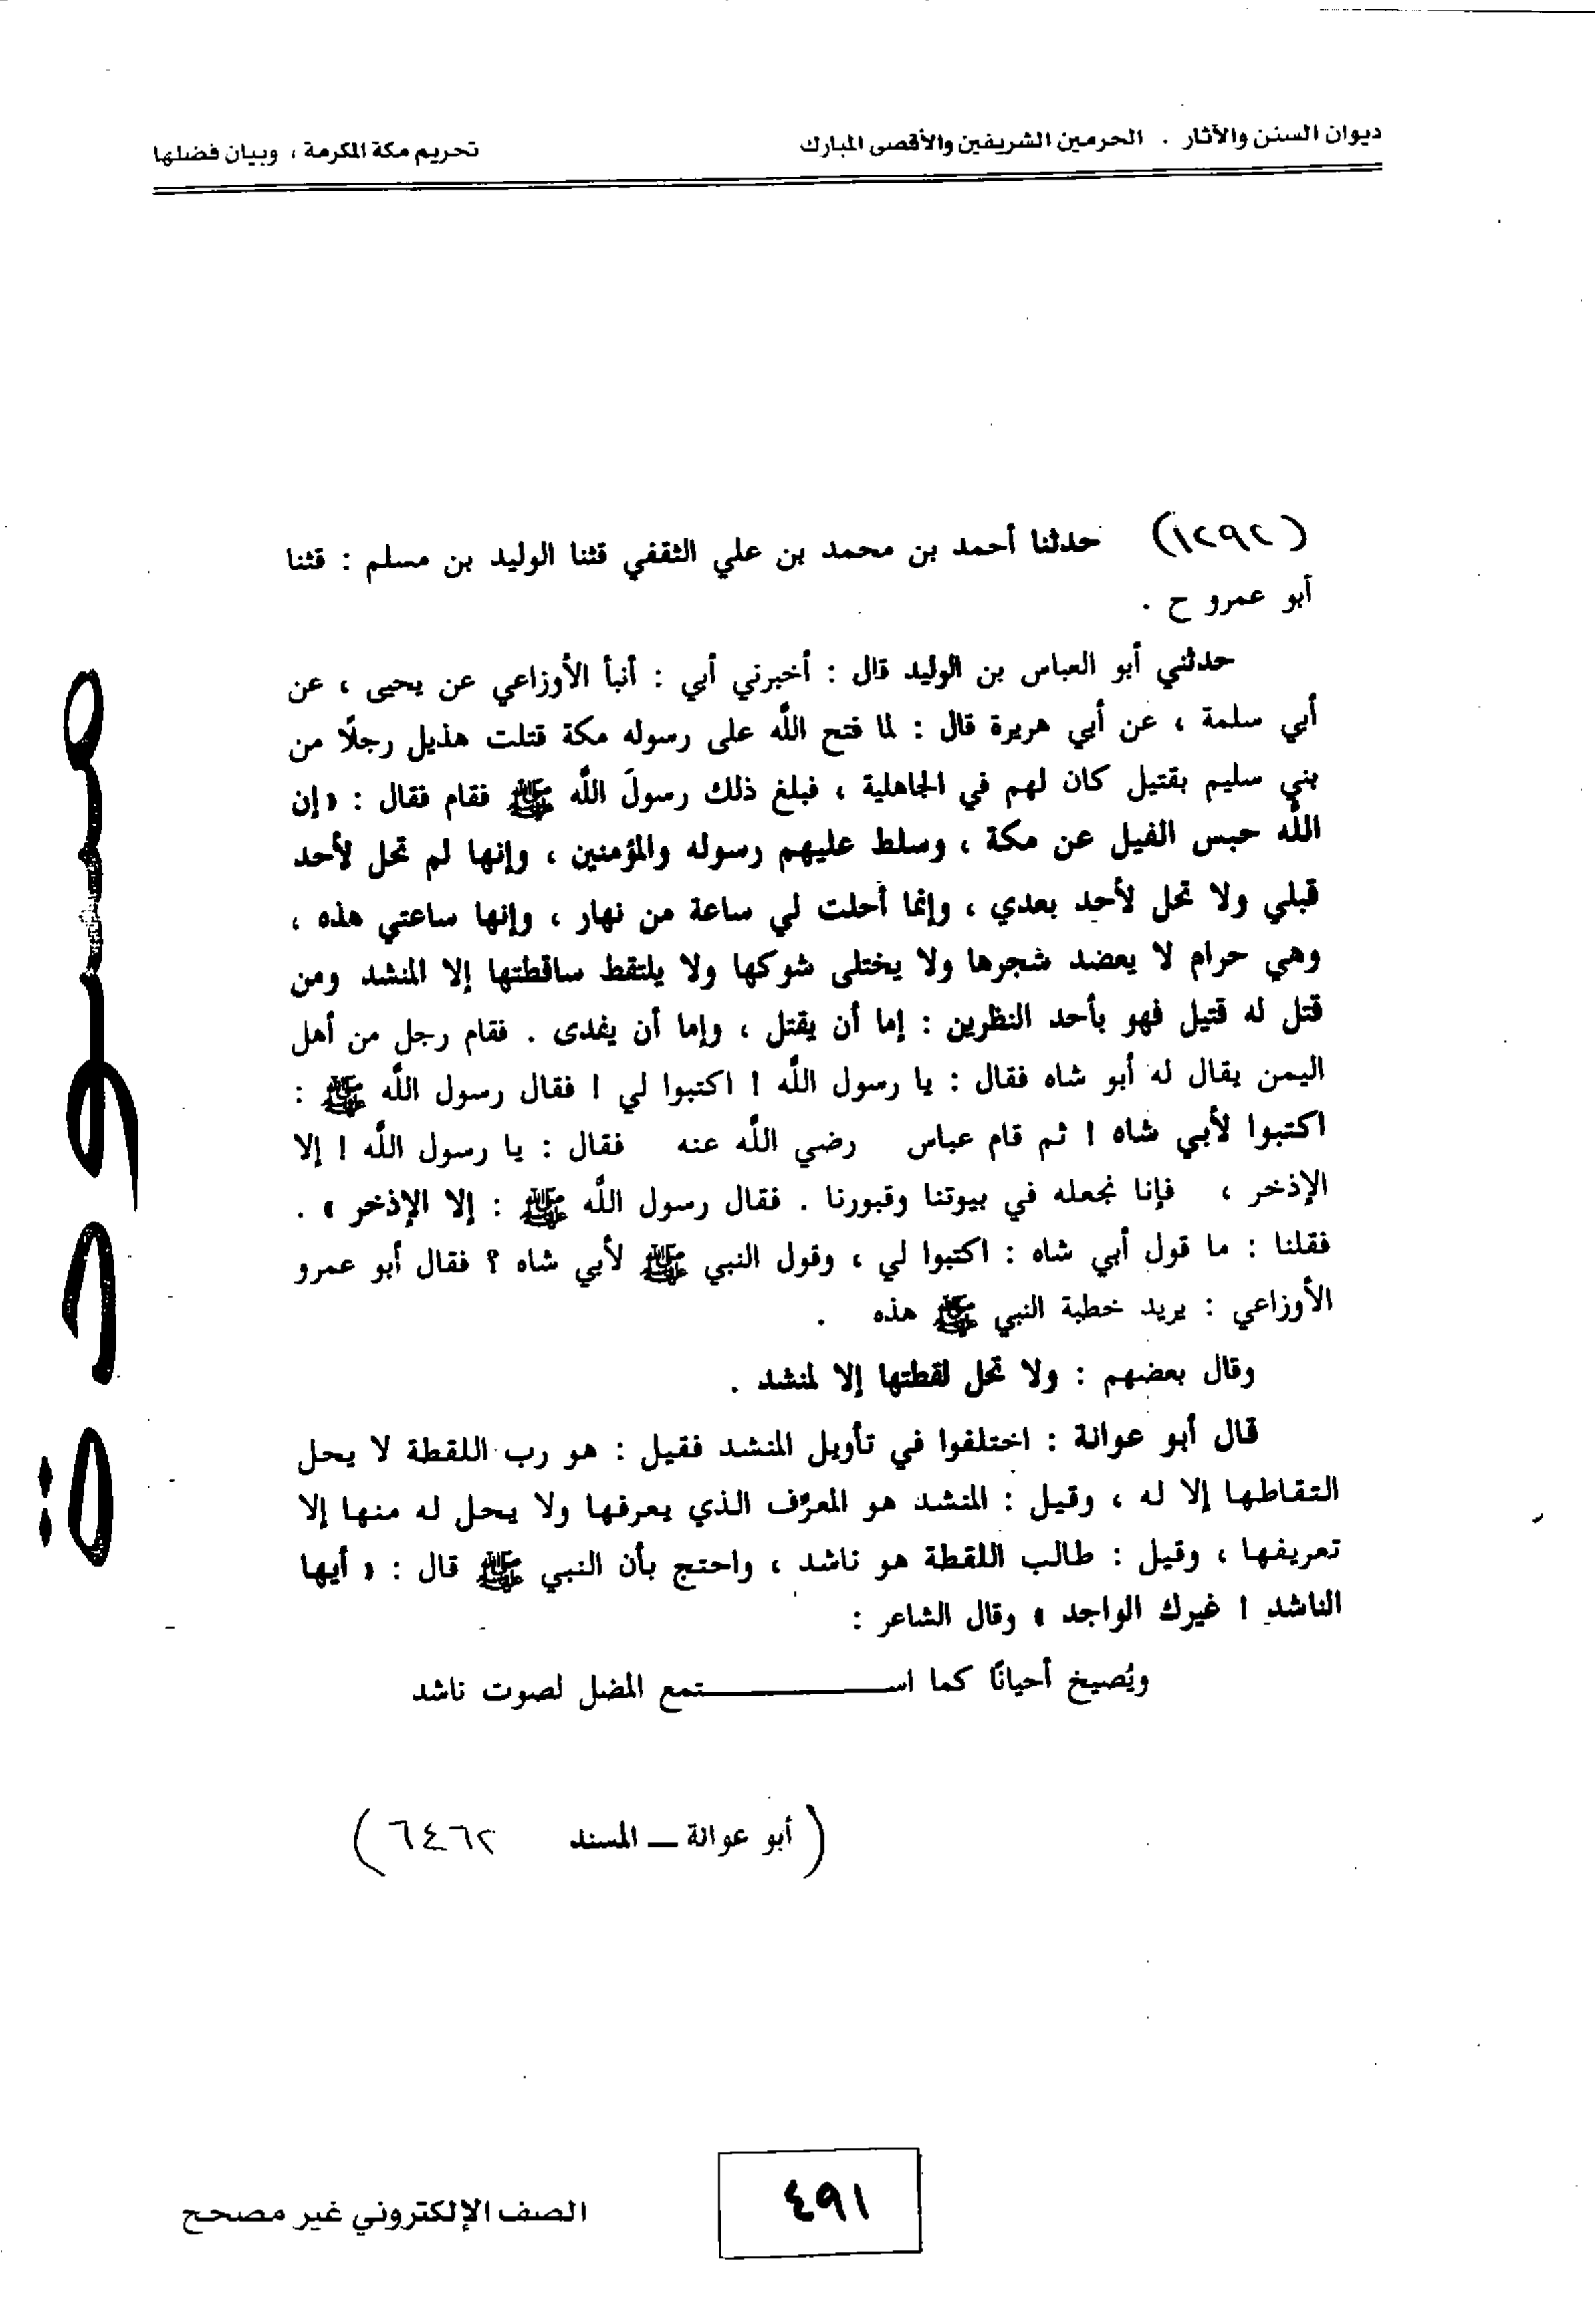 ديوان السنن والآثار . الحرمين الشريفين والأقصى المبارك
تحريم مكة المكرمة ، وبيان فضلها
(١٢٩٢) حدثنا أحمد بن محمد بن علي الثقفي قثنا الوليد بن مسلم : قثنا
أبو عمرو ح .
حدثني أبو العباس بن الوليد قال : أخبرني أبي : أنبأ الأوزاعي عن يحيى ، عن
أبي سلمة ، عن أبي هريرة قال : لما فتح اللَّه على رسوله مكة قتلت هذيل رجلًا من
بني سليم بقتيل كان لهم في الجاهلية ، فبلغ ذلك رسولَ اللَّه ﷺ فقام فقال : « إن
اللَّه حبس الفيل عن مكة ، وسلط عليهم رسوله والمؤمنين ، وإنها لم تحل لأحد
قبلي ولا تحل لأحد بعدي ، وإنما أحلت لي ساعة من نهار ، وإنها ساعتي هذه ،
وهي حرام لا يعضد شجرها ولا يختلى شوكها ولا يلتقط ساقطتها إلا المنشد ومن
قتل له قتيل فهو بأحد النظرين : إما أن يقتل ، وإما أن يفدى . فقام رجل من أهل
اليمن يقال له أبو شاه فقال : يا رسول اللَّه ! اكتبوا لي ! فقال رسول اللَّه ﷺ :
اكتبوا لأبي شاه ! ثم قام عباس رضي اللَّه عنه فقال : يا رسول اللَّه ! إلا
الإذخر ، فإنا نجعله في بيوتنا وقبورنا . فقال رسول اللَّه ﷺ : إلا الإذخر » .
فقلنا : ما قول أبي شاه : اكتبوا لي ، وقول النبي ﷺ لأبي شاه ؟ فقال أبو عمرو
الأوزاعي : يريد خطبة النبي ﷺ هذه .
وقال بعضهم : ولا تحل لقطتها إلا لمنشد .
قال أبو عوانة : اختلفوا في تأويل المنشد فقيل : هو رب اللقطة لا يحل
التقاطها إلا له ، وقيل : المنشد هو المعرِّف الذي يعرفها ولا يحل له منها إلا
تعريفها ، وقيل : طالب اللقطة هو ناشد ، واحتج بأن النبي ﷺ قال : « أيها
الناشد ! غيرك الواجد » وقال الشاعر :
ويُصيخ أحيانًا كما استمع المضل لصوت ناشد
(أبو عوانة ــ المسند ٦٤٦٢)
مسودة
٤٩١
الصف الإلكتروني غير مصحح